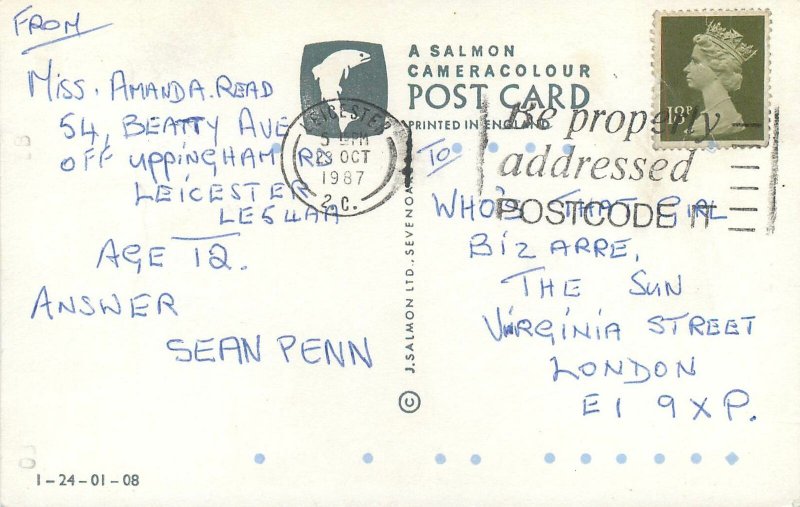 FROM
MISS. AMANDA. READ
54, BEATTY AVE
OFF UPPINGHAM RD
LEICESTER
LE5 4AA
AGE 12.
ANSWER
SEAN PENN
1-24-01-08
A SALMON
CAMERACOLOUR
POST CARD
PRINTED IN ENGLAND
LEICESTER
23 OCT
1987
2.C.
Be properly
addressed
POSTCODE IT
18P
© J. SALMON LTD., SEVENOAKS
TO
WHO'S THAT GIRL
BIZARRE,
THE SUN
VIRGINIA STREET
LONDON
E1 9XP.